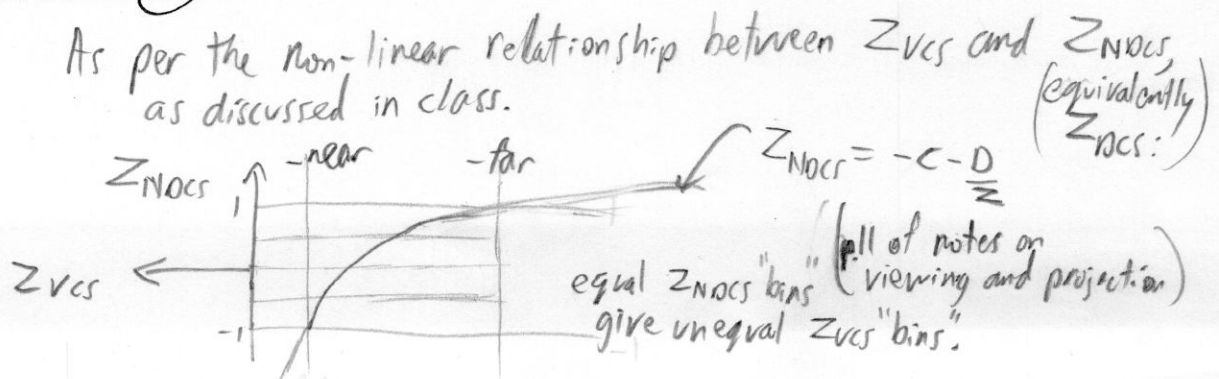 As per the non-linear relationship between Zvcs and ZNDCS,
as discussed in class.
(equivalently
ZDCS.)
-near
-far
ZNDCS
1
ZNDCS = -C - D/Z
Zvcs
-1
(p.11 of notes on
viewing and projection)
equal ZNDCS "bins"
give unequal Zvcs "bins".